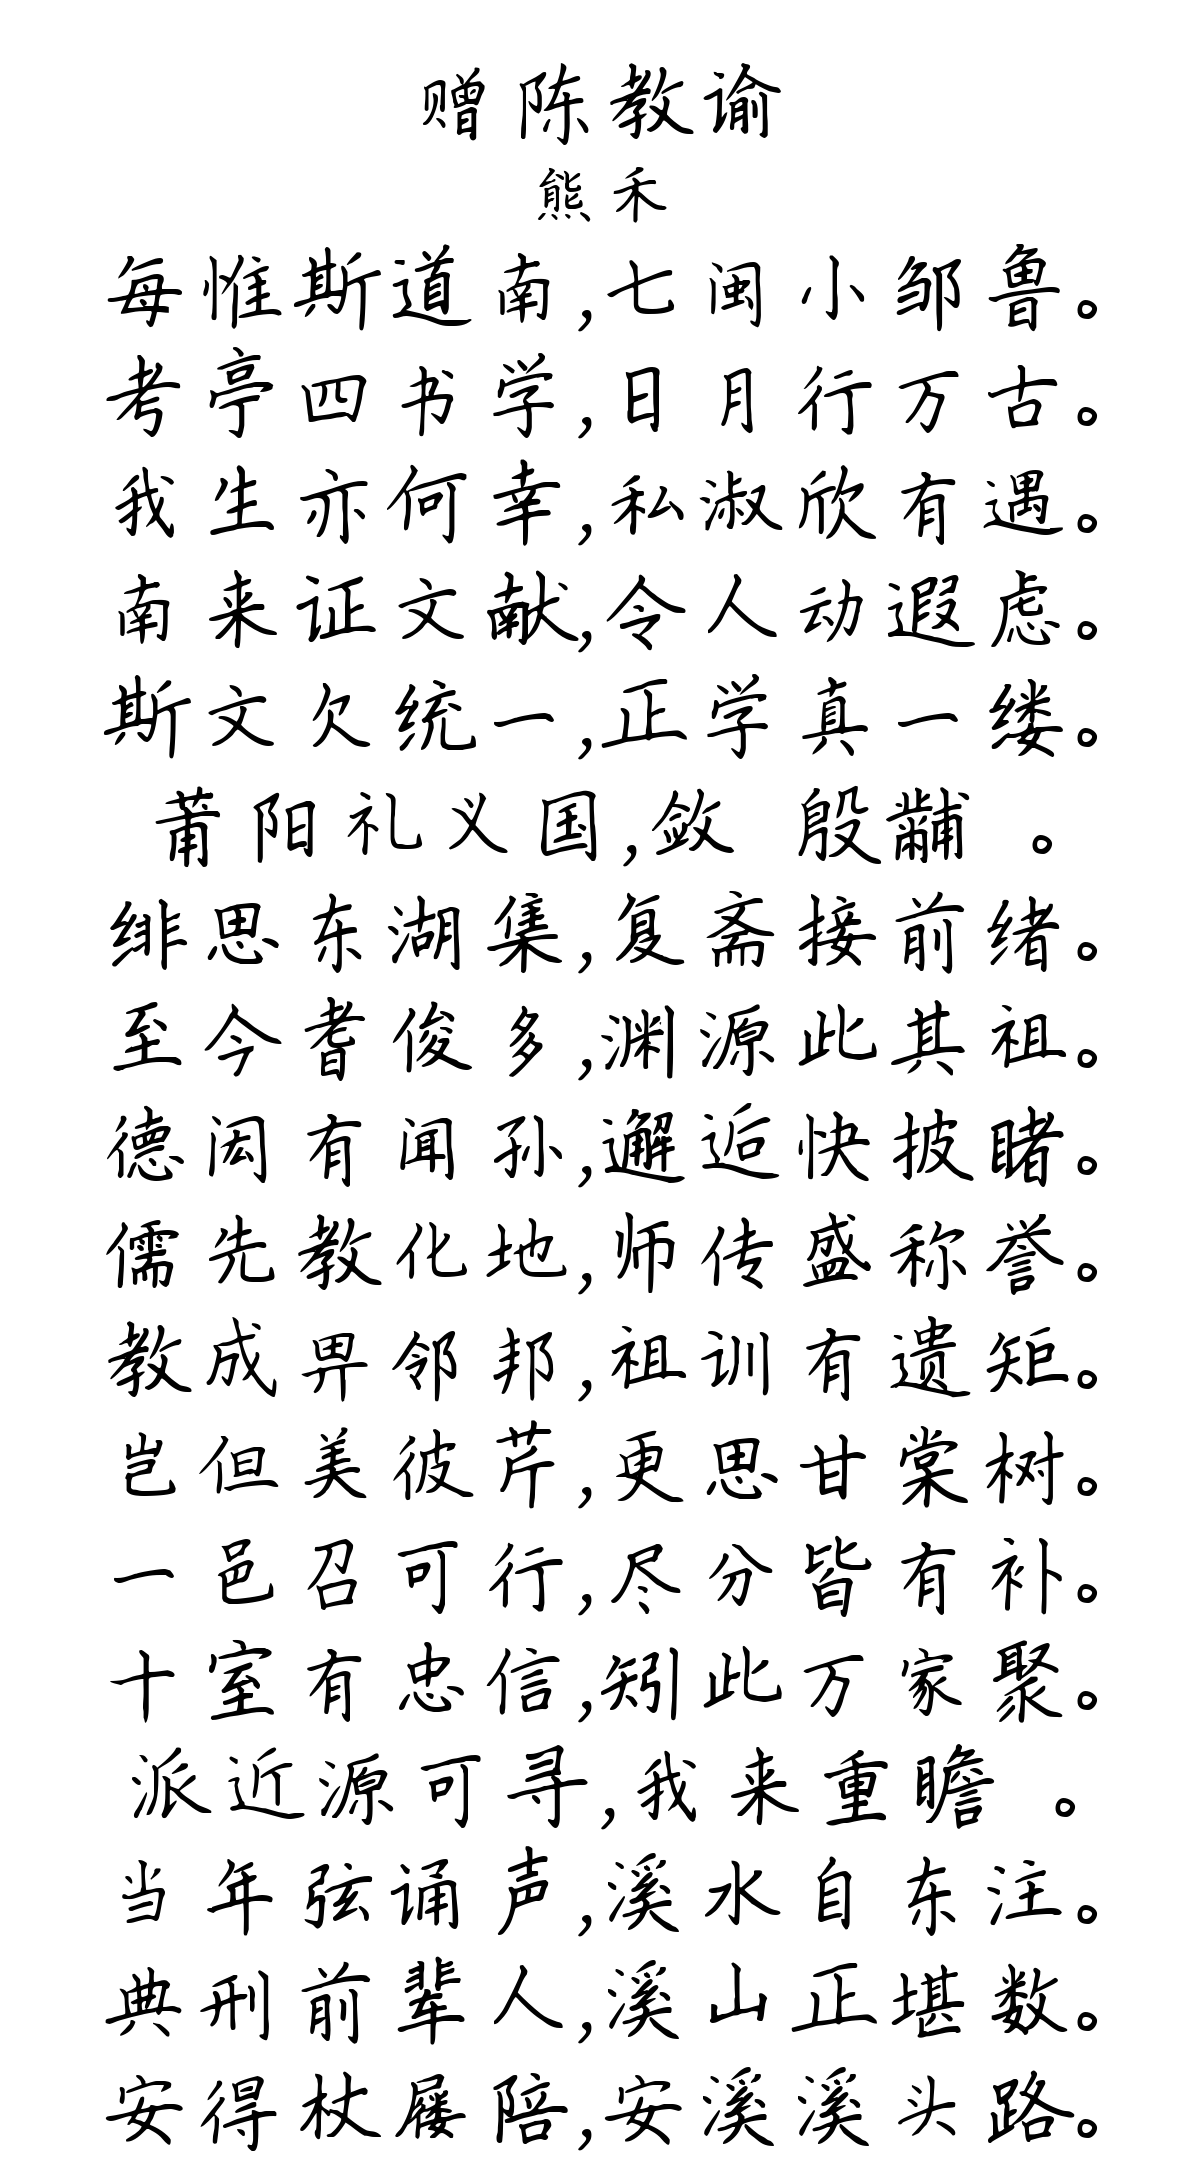 赠陈教谕
熊禾
每惟斯道南,七闽小邹鲁。
考亭四书学,日月行万古。
我生亦何幸,私淑欣有遇。
南来证文献,令人动遐虑。
斯文欠统一,正学真一缕。
莆阳礼义国,敛 殷黼 。
绯思东湖集,复斋接前绪。
至今耆俊多,渊源此其祖。
德闳有闻孙,邂逅快披睹。
儒先教化地,师传盛称誉。
教成畀邻邦,祖训有遗矩。
岂但美彼芹,更思甘棠树。
一邑召可行,尽分皆有补。
十室有忠信,矧此万家聚。
派近源可寻,我来重瞻 。
当年弦诵声,溪水自东注。
典刑前辈人,溪山正堪数。
安得杖屦陪,安溪溪头路。